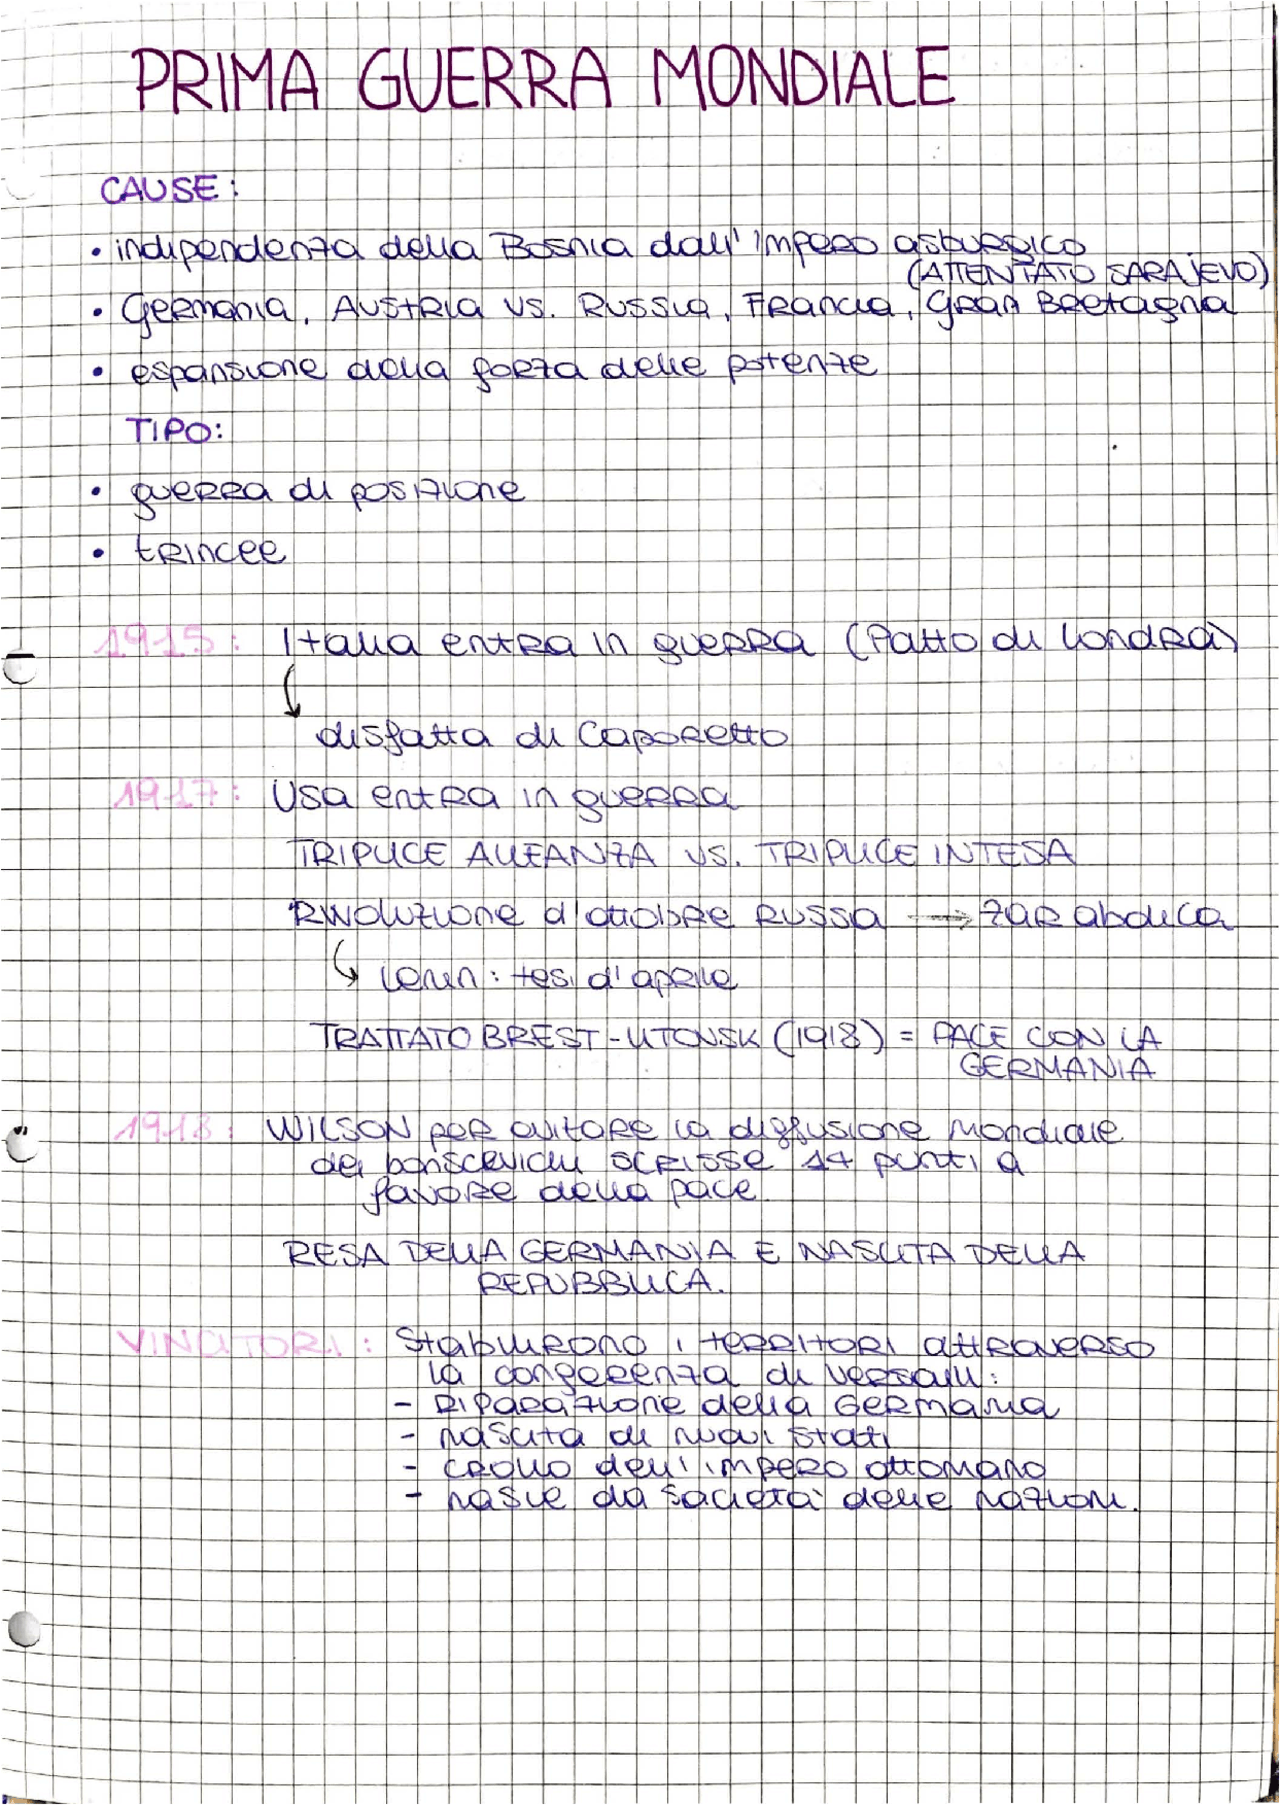 PRIMA GUERRA MONDIALE
CAUSE:
• indipendenza della Bosnia dall'impero asburgico
(ATTENTATO SARAJEVO)
• Germania, Austria vs. Russia, Francia, Gran Bretagna
• espansione della forza delle potenze
TIPO:
• guerra di posizione
• trincee
1915: Italia entra in guerra (Patto di Londra)
disfatta di Caporetto
1917: Usa entra in guerra
TRIPLICE ALLEANZA VS. TRIPLICE INTESA
Rivoluzione d'ottobre Russa → zar abdica
↳ Lenin: tesi d'aprile
TRATTATO BREST-LITOVSK (1918) = PACE CON LA
GERMANIA
1918: WILSON per evitare la diffusione mondiale
dei bonscevichi scrisse 14 punti a
favore della pace
RESA DELLA GERMANIA E NASCITA DELLA
REPUBBLICA.
VINCITORI: Stabilirono i territori attraverso
la conferenza di Versaill:
- Riparazione della Germania
- nascita di nuovi stati
- crollo dell'impero ottomano
- nasce la società delle nazioni.